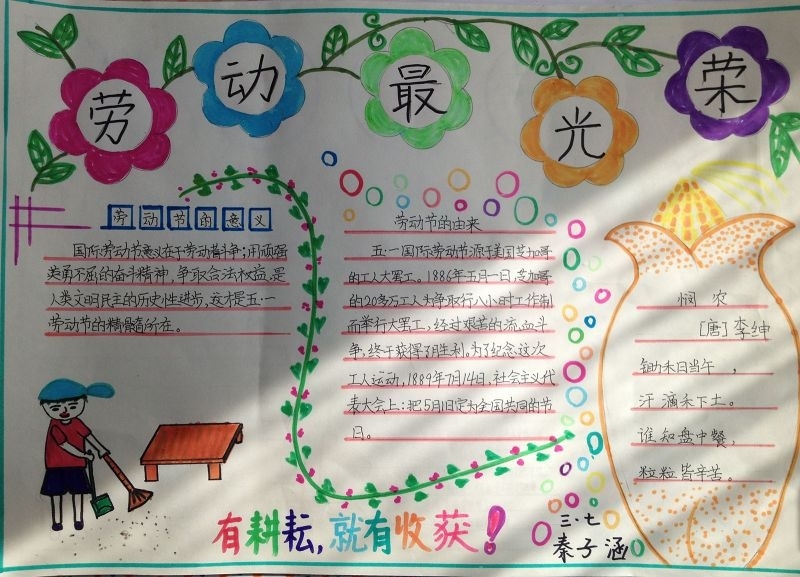 劳动最光荣
劳动节的意义
国际劳动节意义在于劳动者斗争:用顽强
英勇不屈的奋斗精神,争取合法权益,是
人类文明民主的历史性进步,这才是五·一
劳动节的精髓所在。
劳动节的由来
五·一国际劳动节源于美国芝加哥
的工人大罢工。1886年五月一日,芝加哥
的20多万工人为争取行八小时工作制
而举行大罢工,经过艰苦的流血斗
争,终于获得了胜利。为了纪念这次
工人运动,1889年7月14日,社会主义代
表大会上:把5月1日定为全国共同的节
日。
悯农
[唐]李绅
锄禾日当午,
汗滴禾下土。
谁知盘中餐,
粒粒皆辛苦。
有耕耘,就有收获!
三·七
秦子涵